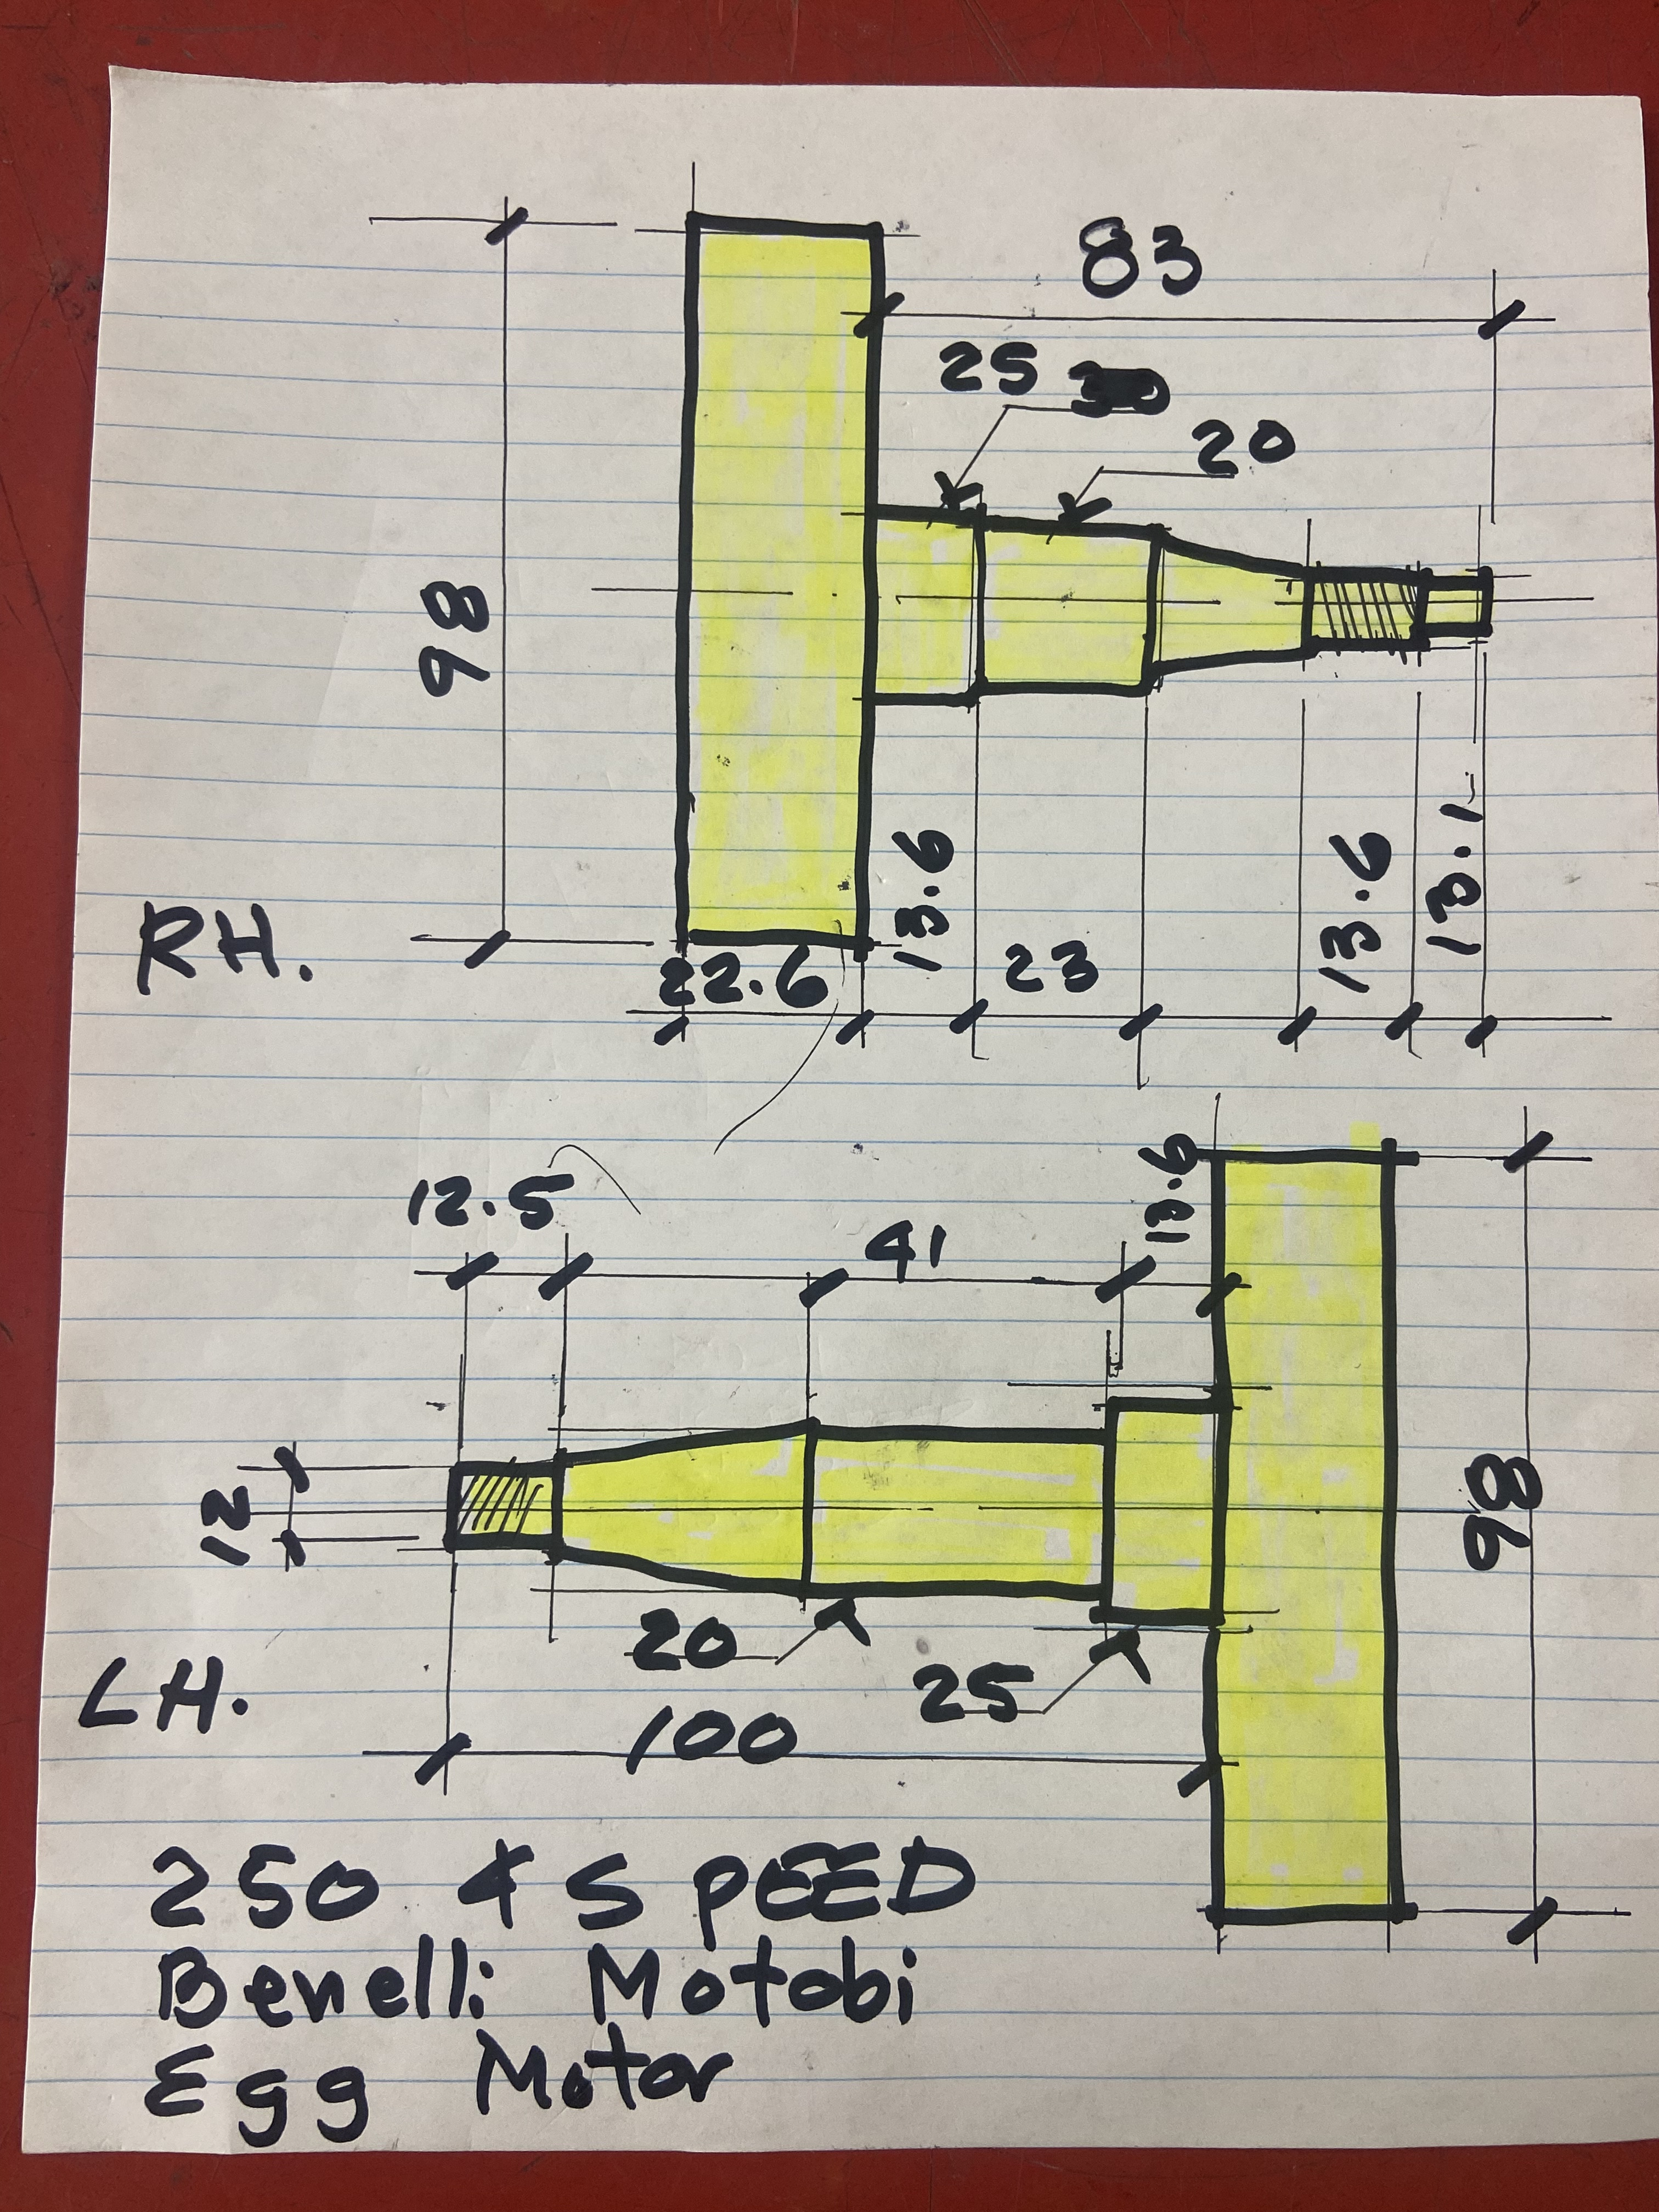 83
25
20
98
13.6
13.6
13.1
RH.
22.6
23
13.6
12.5
41
12
98
20
25
LH.
100
250 4 SPEED
Benelli Motobi
Egg Motor